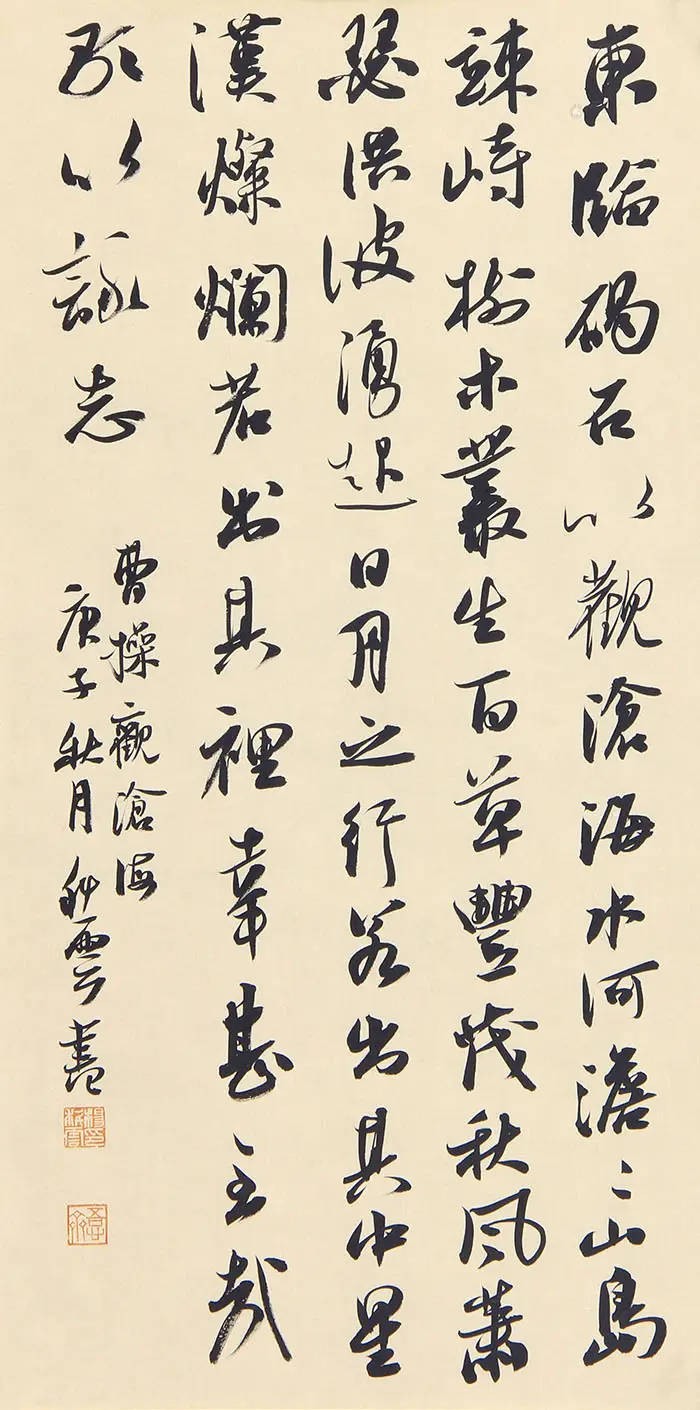 東臨碣石以觀滄海水河澹〻山島
竦峙樹木叢生百草豐茂秋風蕭
瑟洪波湧起日月之行若出其中星
漢燦爛若出其裡幸甚至哉
歌以詠志
曹操觀滄海
庚子秋月 雲書